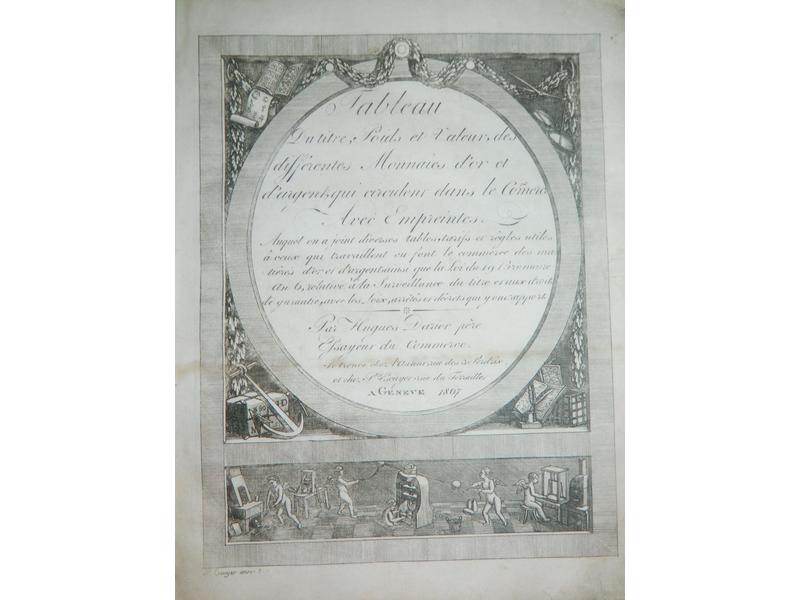 Tableau
Du titre, Poids et Valeur, des
différentes Monnaies d'or et
d'argent, qui circulent dans le Com̃erce
Avec Empreintes.
Auquel on a joint diverses tables, tarifs et règles utiles
à ceux qui travaillent ou font le commerce des ma
tières d'or et d'argent ainsi que la Loi du 19 Brumaire
An 6, relative à la Surveillance du titre et aux droits
de garantie, avec les Loix, arrêtés et décrets qui y ont rapport.
Par Hugues Darier père
Essayeur du Commerce.
Se trouve chez l'Auteur, rue des
et chez rue du
A GENEVE 1807